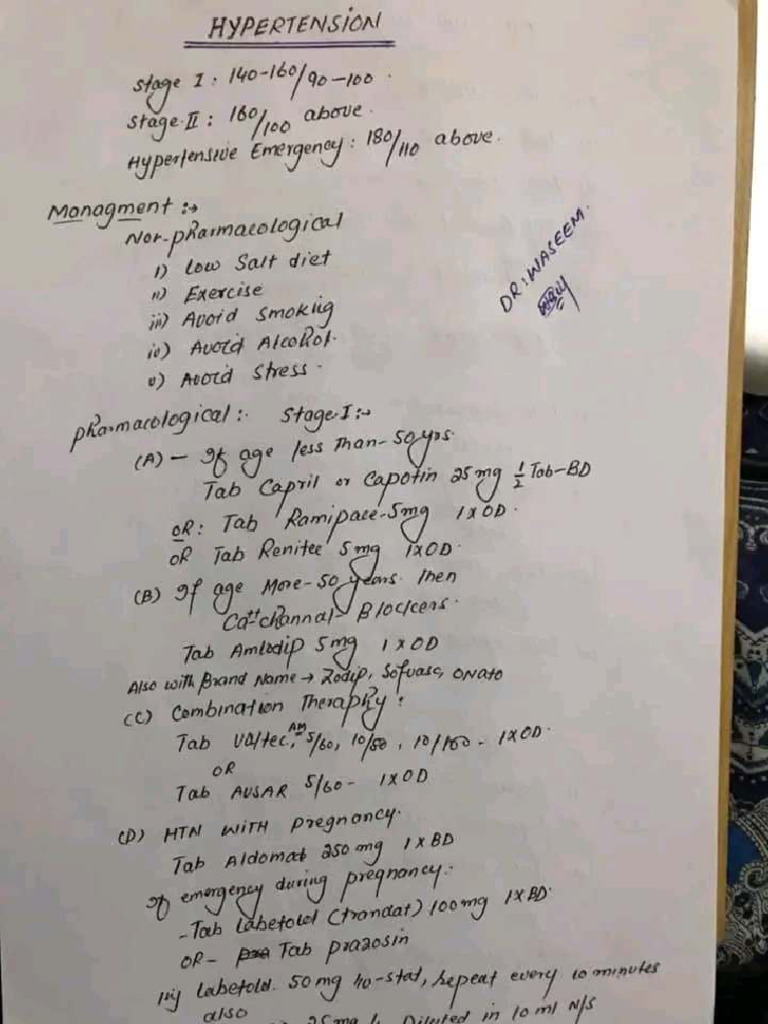 HYPERTENSION
Stage I : 140-160/90-100.
Stage II : 160/100 above.
Hypertensive Emergency : 180/110 above.
Managment :→
Non-pharmacological
i) Low Salt diet
ii) Exercise
iii) Avoid Smoking
iv) Avoid Alcohol.
v) Avoid Stress.
DR: WASEEM.
Pharmacological :. Stage I :→
(A) - If age less than - 50yrs.
Tab Capril or Capotin 25 mg 1/2 Tab-BD
OR: Tab Ramipace-5mg 1XOD.
OR Tab Renitec 5mg 1XOD.
(B) If age More-50 years. then
Ca++ channal- Blockers.
Tab Amlodip 5mg 1 X OD
Also with Brand Name → Zodip, Sofvasc, ONato
(C) Combination Theraphy :
Tab Valtec, AM 5/80, 10/80, 10/160 - 1XOD.
OR
Tab AUSAR 5/80 - 1XOD
(D) HTN WITH Pregnancy.
Tab Aldomat 250 mg 1 X BD
If emergency during pregnancy :-
-Tab Labetolol (trandat) 100mg 1XBD.
OR - Tab prazosin
inj labetold. 50 mg -stat, repeat every 10 minutes
also
25mg Diluted in 10 ml N/S